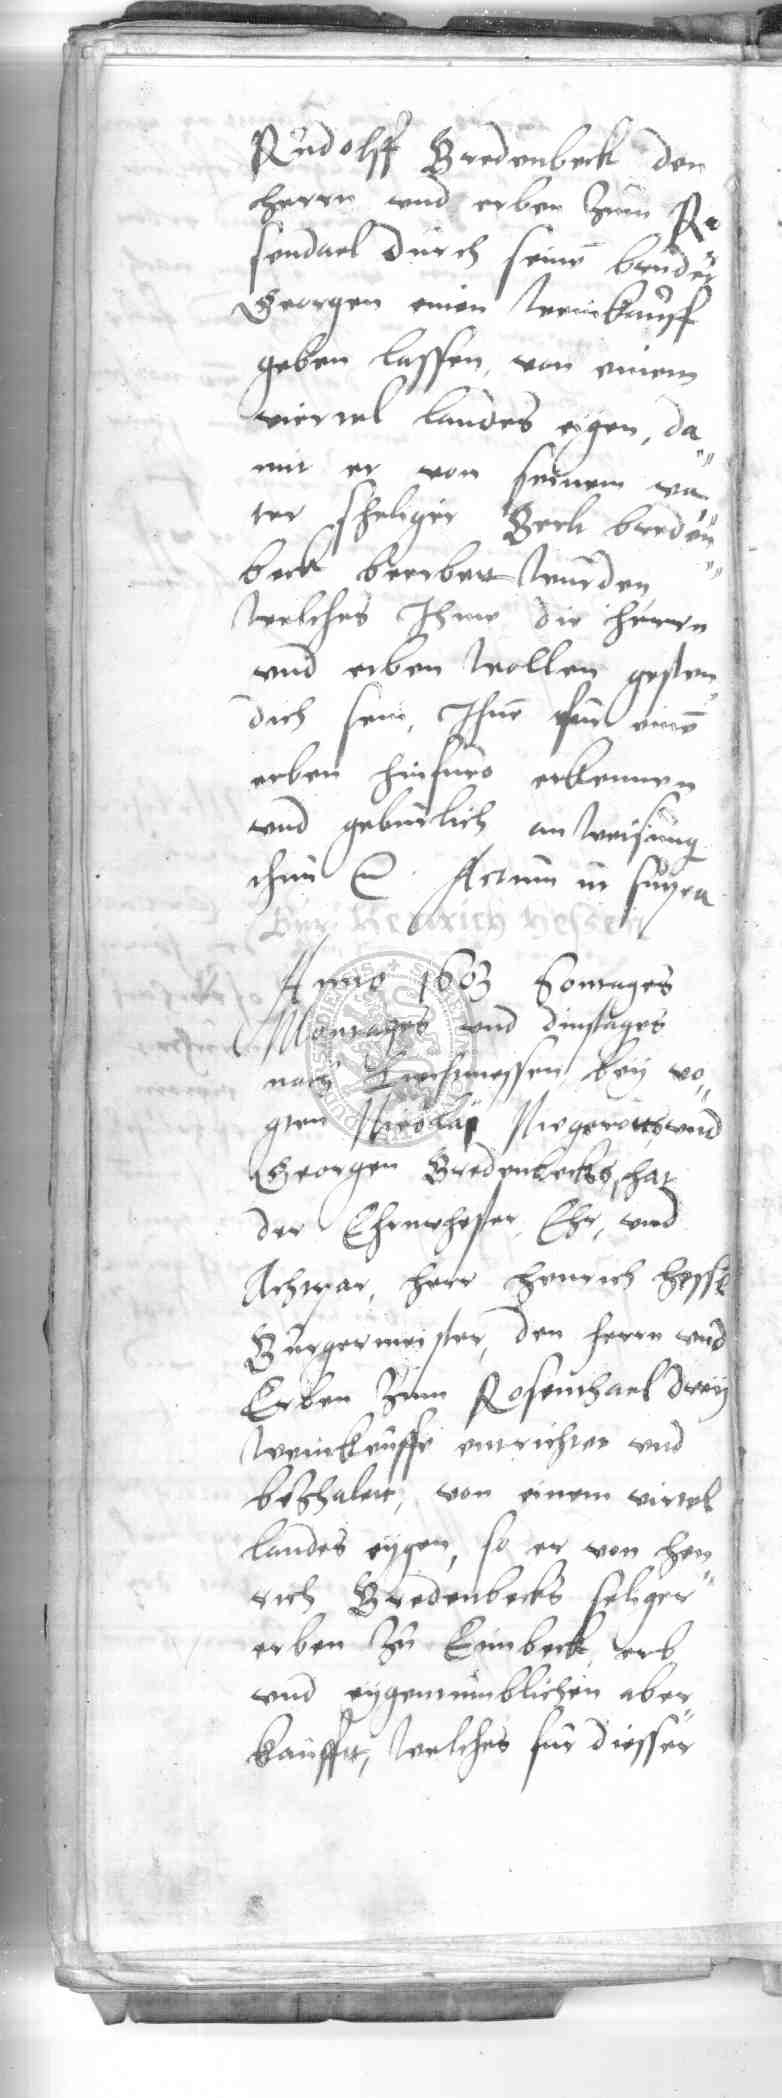 Rudolff Bredenbeck den
herrn vnd erben Zum Ro
sendael durch seinē bruder
Georgen einen weinkauff
geben lassen, von einem
viertel landes eygen, da„
mit er von seinem va„
ter sheliger Berlt breden„
beck beerbett wurden,
welches Ihme die herrn
vnd erben wollen gesten„
dich sein, Ihne für einē
erben hinfuro erkennen
vnd geburlich anweisung
thun Actum ut supra
Bur. Henrich Hessen
Anno 1603 Sontages
Montages vnd dinstages
nach Lichtmessen bey vo„
gten Nicolai Niegerotths vnd
Georgen Bredenbecks, hat
der Ehrnvhester, Ehr, vnd
Achtpar, herr Henrich Hesse
Burgermeister, den herrn vnd
Erben Zum Rosenthael drey
weinkeuffe entrichtet vnd
bezhalett, von einem virtel
landes eygen, so er von Hen„
rich Bredenbecks seliger
erben Zu Eimbeck, erb
vnd eygentumblichen aber
kaufft, welches für diesser